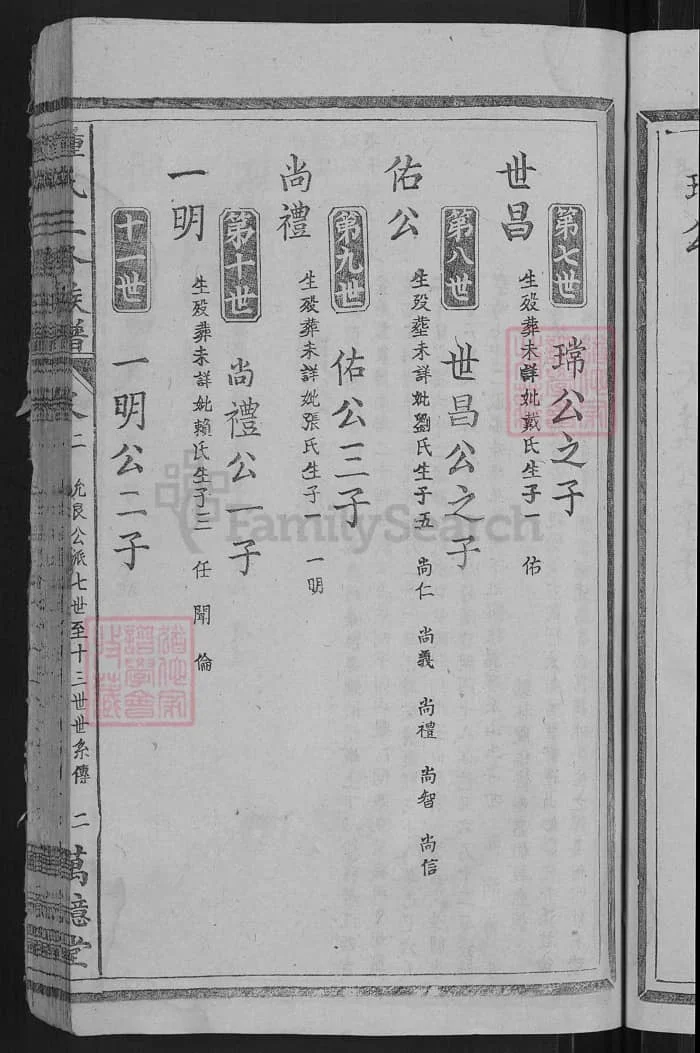 第七世 瑞公之子
世昌 生殁葬未詳妣戴氏生子一 佑
第八世 世昌公之子
佑公 生殁塟未詳妣劉氏生子五 尚仁 尚義 尚禮 尚智 尚信
第九世 佑公三子
尚禮 生殁葬未詳妣張氏生子一 一明
第十世 尚禮公一子
一明 生殁葬未詳妣賴氏生子三 任 聞 倫
十一世 一明公二子
氏 族譜 卷二 允良公派七世至十三世世系傳 二 萬億堂
FamilySearch